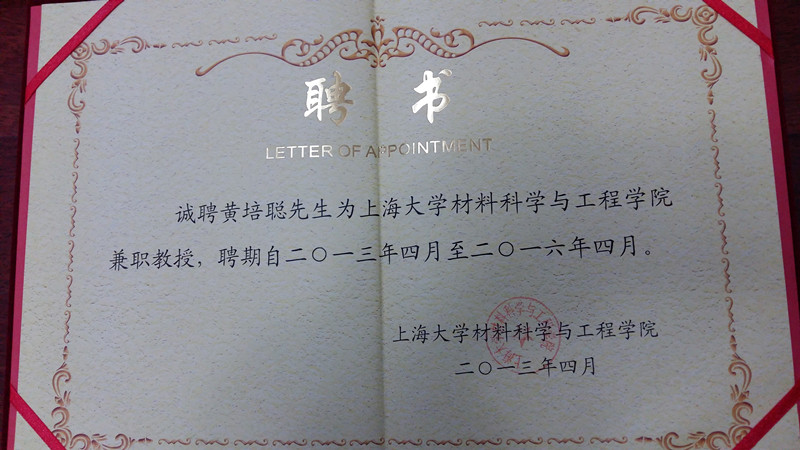 聘 书
LETTER OF APPOINTMENT
诚聘黄培聪先生为上海大学材料科学与工程学院
兼职教授，聘期自二〇一三年四月至二〇一六年四月。
上海大学材料科学与工程学院
二〇一三年四月